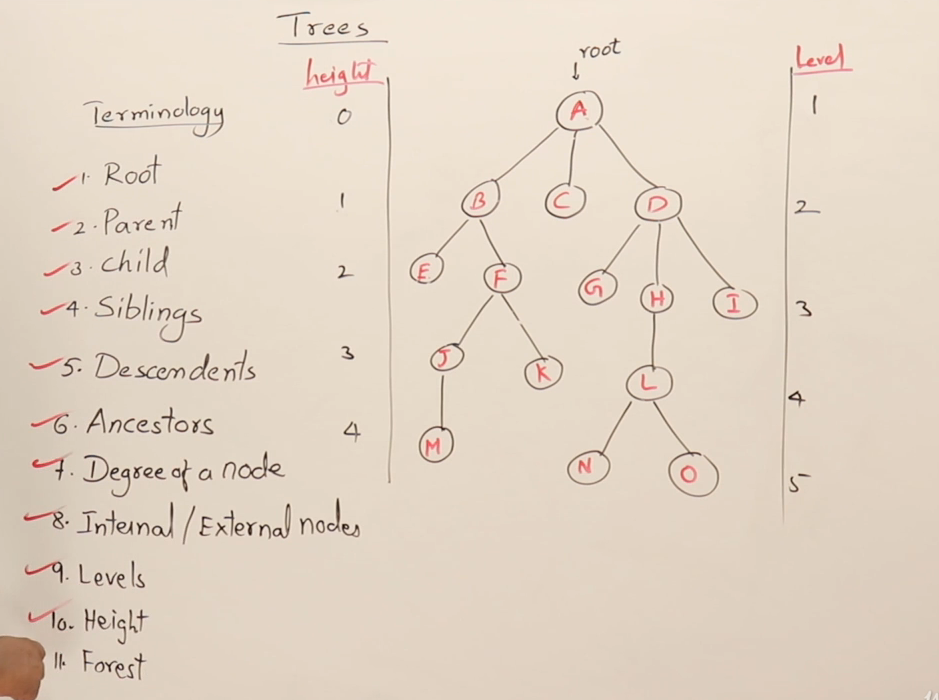 Trees
Terminology
1. Root
2. Parent
3. child
4. Siblings
5. Descendents
6. Ancestors
7. Degree of a node
8. Internal / External nodes
9. Levels
10. Height
11. Forest
height
0
1
2
3
4
root
A
B C D
E F G H I
J K L
M N O
Level
1
2
3
4
5